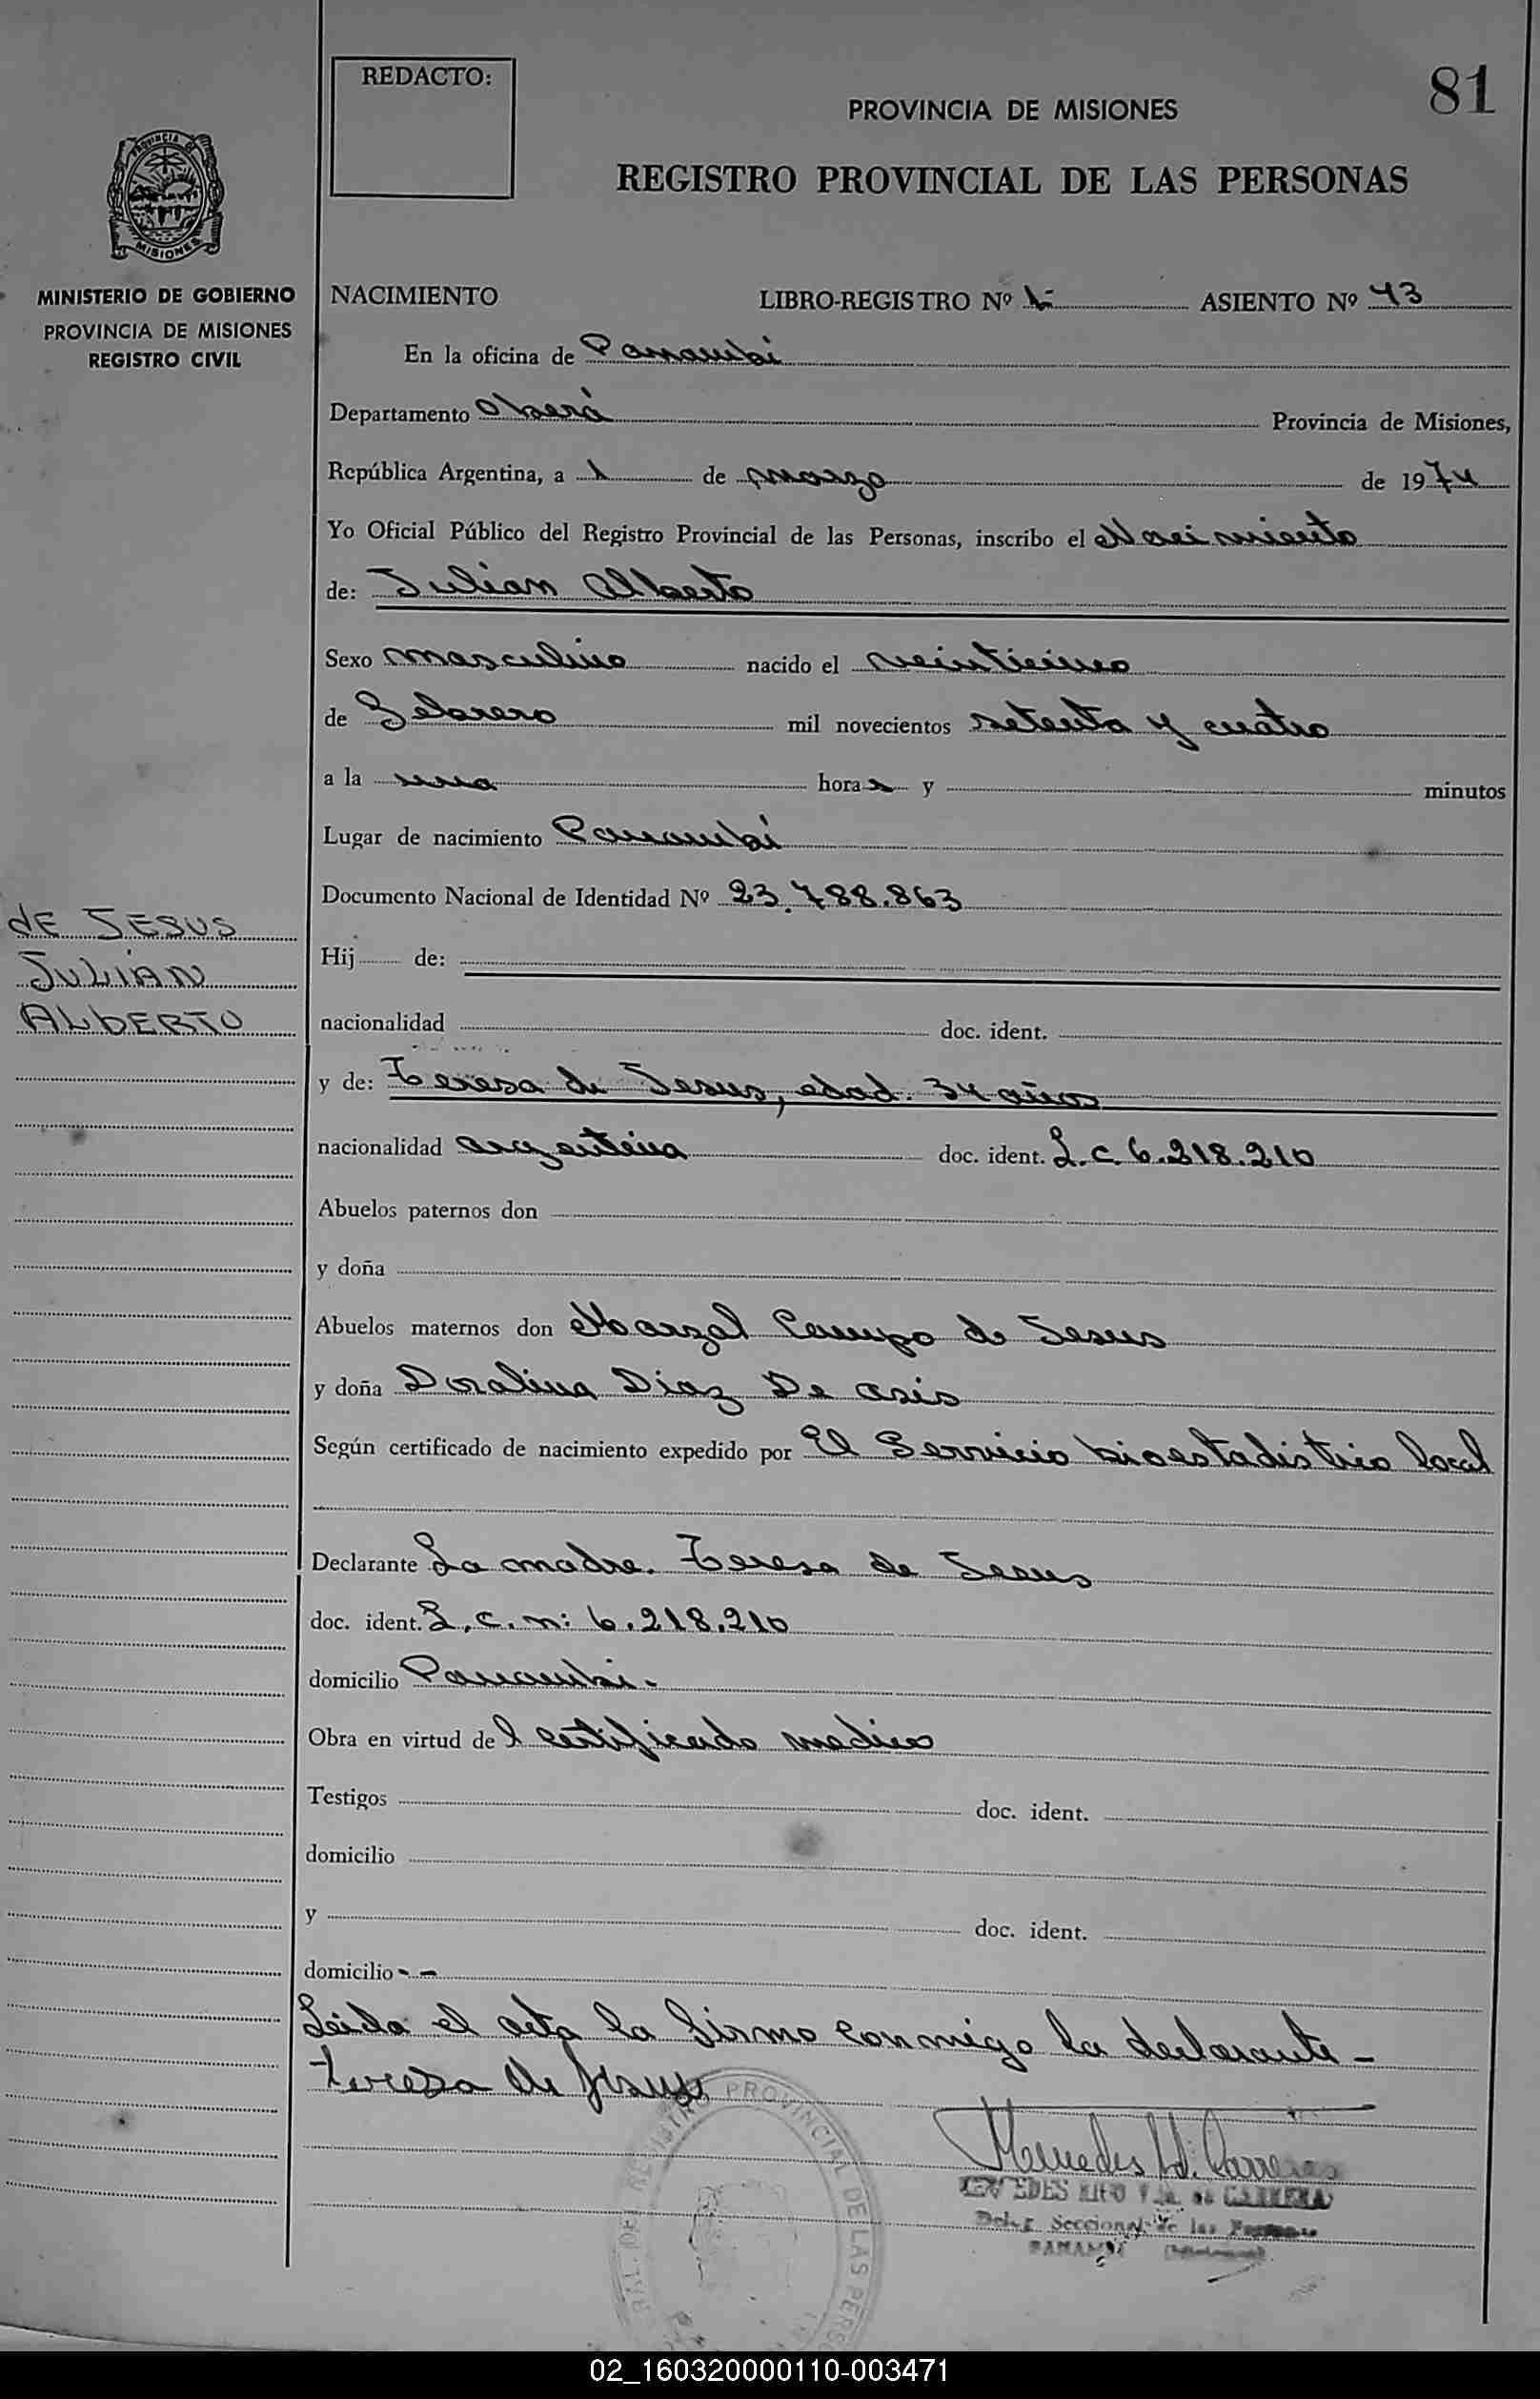 REDACTO:
81
PROVINCIA DE MISIONES
REGISTRO PROVINCIAL DE LAS PERSONAS
PROVINCIA DE
MISIONES
MINISTERIO DE GOBIERNO
PROVINCIA DE MISIONES
REGISTRO CIVIL
NACIMIENTO LIBRO-REGISTRO Nº 1 ASIENTO Nº 43
En la oficina de Panambi
Departamento Oberá Provincia de Misiones,
República Argentina, a 1 de marzo de 1974
Yo Oficial Público del Registro Provincial de las Personas, inscribo el Nacimiento
de: Julian Alberto
Sexo masculino nacido el veinticinco
de Febrero mil novecientos setenta y cuatro
a la una horas y minutos
Lugar de nacimiento Panambi
Documento Nacional de Identidad Nº 23.788.863
de JESUS
JULIAN
ALBERTO
Hij de:
nacionalidad doc. ident.
y de: Teresa de Jesus, edad. 34 años
nacionalidad argentina doc. ident. L.C. 6.218.210
Abuelos paternos don
y doña
Abuelos maternos don Marzal Campo de Jesus
y doña Doralina Diaz De asis
Según certificado de nacimiento expedido por El Servicio bioestadistico local
Declarante La madre. Teresa de Jesus
doc. ident. L.C. n: 6.218.210
domicilio Panambi.
Obra en virtud de l certificado medico
Testigos doc. ident.
domicilio
y doc. ident.
domicilio - -
Leida el acta la firma conmigo la declarante -
Teresa de Jesus
REGISTRO PROVINCIAL DE LAS PERSO
DE CARRERA
Seccional de las
PANAMBI
02_160320000110-003471